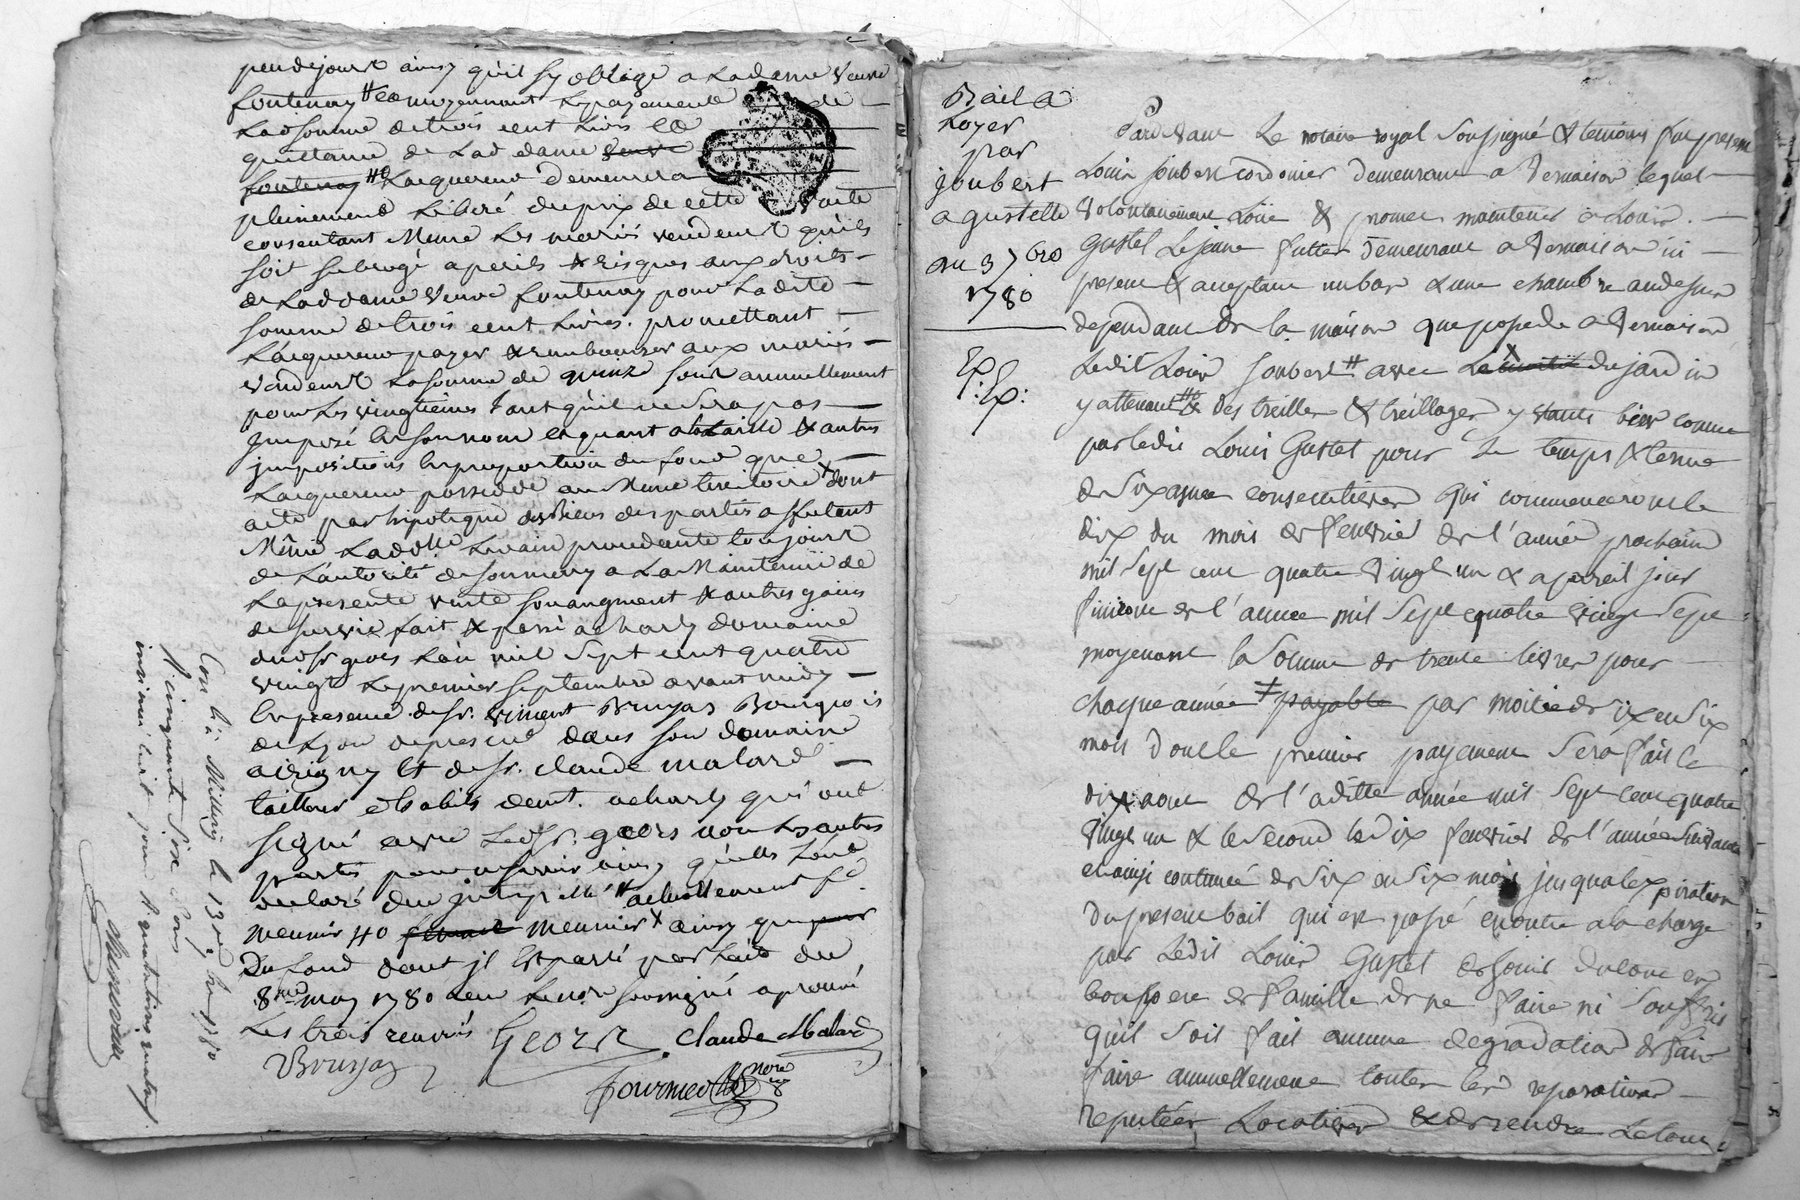 peu de jours ainsy qu'il s'y oblige a La dame veuve
fontenay moyennant Le payement de
Lad. somme de trois cent Livres
quittance de Lad. dame veuve
fontenay Lacquereur demeurera
pleinement Libéré du prix de cette vente
consentant Meme Les mariés vendeurs qu'il
soit subrogé a perils & risques aux droits
de Lad dame veuve fontenay pour La dite
somme de trois cent Livres. promettant
Lacquereur payer & rembourser aux mariés
vendeurs La somme de quinze sous annuellement
pour Les vingtiemes tant qu'il ne sera pas
Imposé en son nom et quant a la taille & autres
impositions en proportion du fond que
Lacquereur possede au Meme territoire dont
acte par hipoteque des biens des parties affectant
Même Lad. procedante toujours
de Lautorité de son mary a La Maintenüe de
La presente vente son augment & autres gains
de survie fait & passé a charly domaine
dud. Sr. geors L'an mil sept cent quatre
vingt Le premier septembre avant midy
En presence de sr. vincent Bruyas Bourgeois
de Lyon de present dans son domaine
a irigny et de sr. claude malard
tailleur d'habits demt. a charly qui ont
signé avec Led. Sr. geors non Les autres
parties pour ne savoir ainsy qu'elles L'ont
declaré
meunier meunier ainsy que
Du fond dont il Est parlé par Lacte du
8me may 1780 Le soussigné aprouvé
Les trois renvois
Geors. claude Malard
Bruyas
fournier nore
Con. lé a Millery le 13 7bre 1780
R. cinquante six sous
Bail a
Loyer
par
joubert
a gustelle
du 3 7bre
1780
Ex.
Ex:
Pardevant Le notaire royal soussigné & temoins fut present
Louis Joubert cordonier demeurant a Vernaison lequel
volontairement Loüe & promet maintenir a Louis
Gustel Le jeune futtier demeurant a Vernaison ici
present & acceptant un bas & une chambre au dessus
dependant de la maison que possede a Vernaison
Ledit Louis Joubert avec La moitié du jardin
y attenant des treilles & treillages y etants bien connue
par ledit Louis Gustel pour Le temps & terme
de six années consecutives qui commenceront le
dix du mois de fevrier de l'année prochaine
mil sept cent quatre vingt un & a pareil jour
finiront de l'annee mil sept quatre vingt sept
moyenant la somme de trente livres pour
chaque année payable par moitie de six en six
mois dont le premier payement sera fait le
dix aout de l'aditte année mil sept cent quatre
vingt un & le second le dix fevrier de l'année suivante
et ainsi continué de six en six mois jusqu'a lexpiration
Du present bail qui est passé en outre a la charge
par Ledit Louis Gustel de jouir du loué en
bon pere de famille de ne faire ni souffrir
qu'il soit fait aucune degradation de faire
faire annuellement toutes les reparations
reputées Locatives & de rendre Le loué